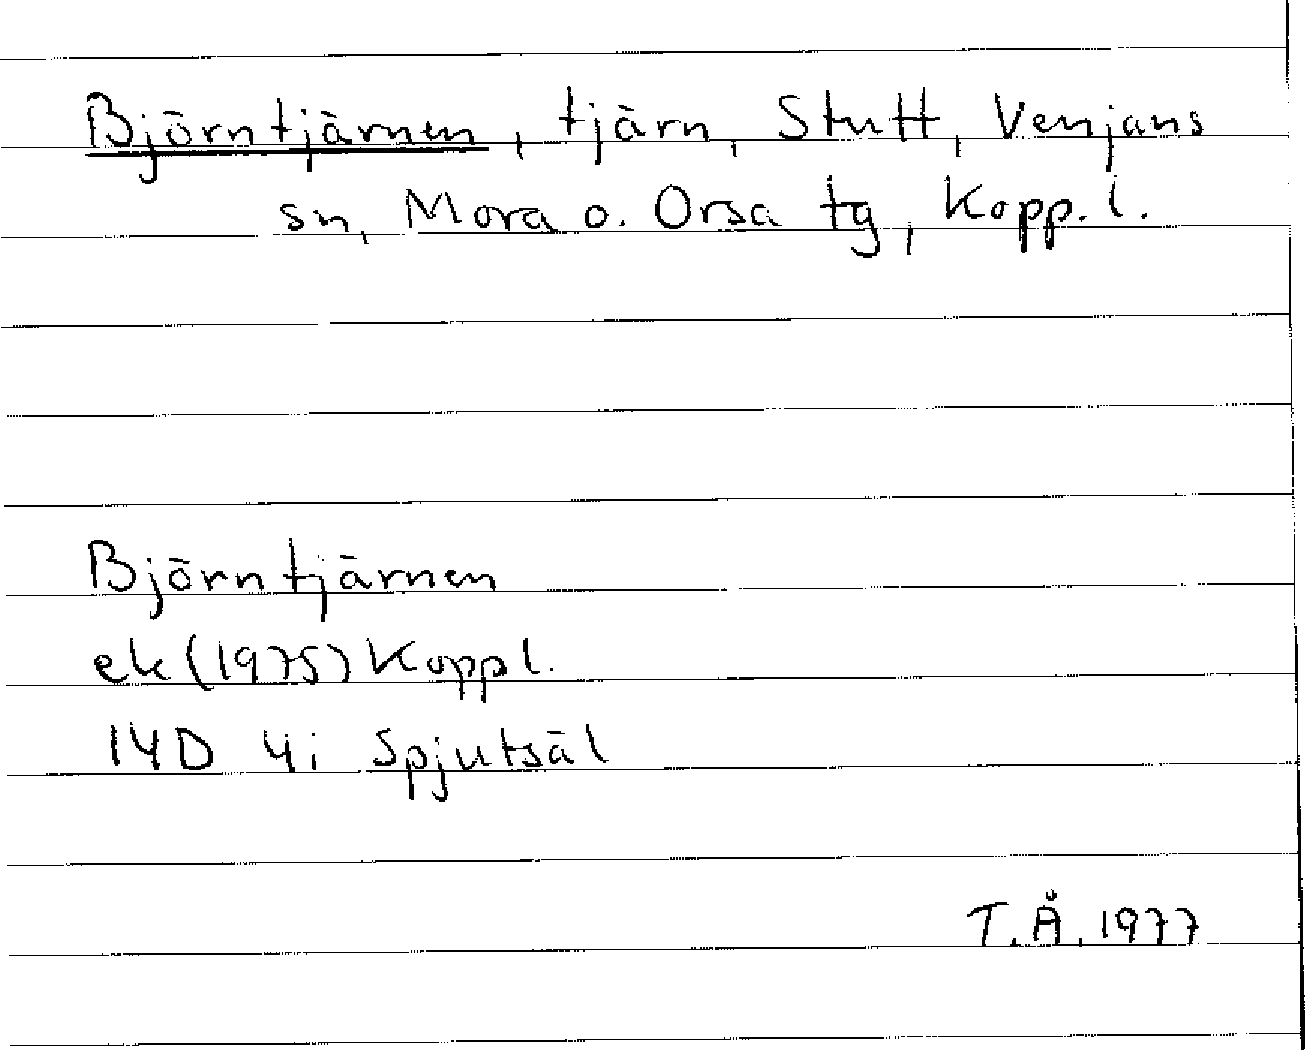 Björntjärnen, tjärn, Stutt, Venjans
sn, Mora o. Orsa tg, Kopp. l.
Björntjärnen
ek (1975) Koppl.
14D 4i Spjutsäl
T.Å. 1977